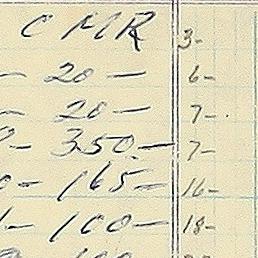 CMR 3-
- 20 - 6-
- 20 - 7-
- 350.- 7-
- 165- 16-
- 100- 18-